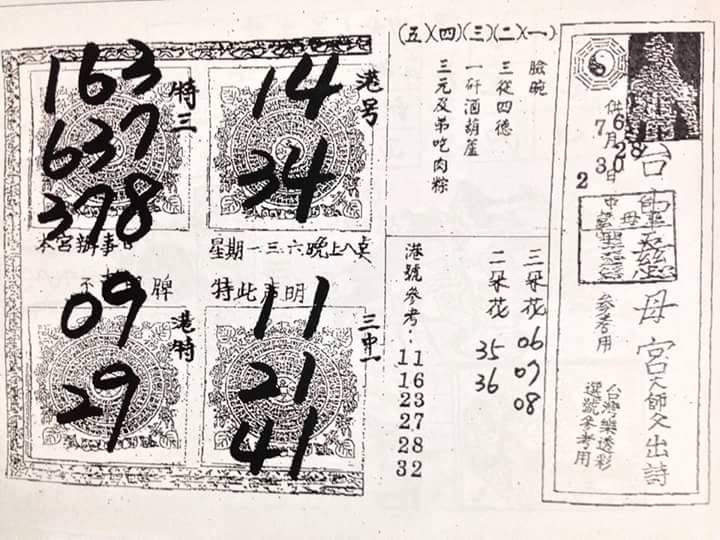 台中聖母宮大師父出詩
供
7月
6
28
30
2
日
參考用
台灣樂透彩
選號參考用
(五)(四)(三)(二)(一)
臉腕
三從四德
一矸酒葫蘆
三元及弟吃肉粽
三朵花
06
07
08
二朵花
35
36
港號參考:
11
16
23
27
28
32
港号
14
34
特三
163
637
378
星期一三六晚上八点
本宮辦事
特此声明
不
牌
三中一
11
21
41
港特
09
29